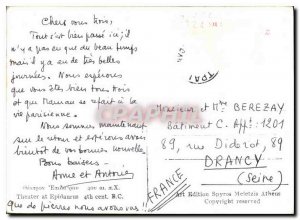 Chers vous trois,
Tout s'est bien passé ici, il
n'y a pas eu que du beau temps
mais il y a eu de très belles
journées. Nous espérons
que vous êtes bien tous trois
et que Maman se refait à la
vie parisienne.
Nous sommes maintenant
sur le retour et espérons avoir
bientôt de vos bonnes nouvelles.
Bons baisers.
Anne et Antoine
4ος π.Χ.
Theater at Epidaurus 4th cent. B.C.
que de pierres nous avons vues
Monsieur et Mme BEREZAY
Bâtiment C. Appt: 1201
89, rue Diderot, 89
DRANCY
(Seine)
FRANCE
Art Edition Spyros Meletzis Athens
Copyright reserved